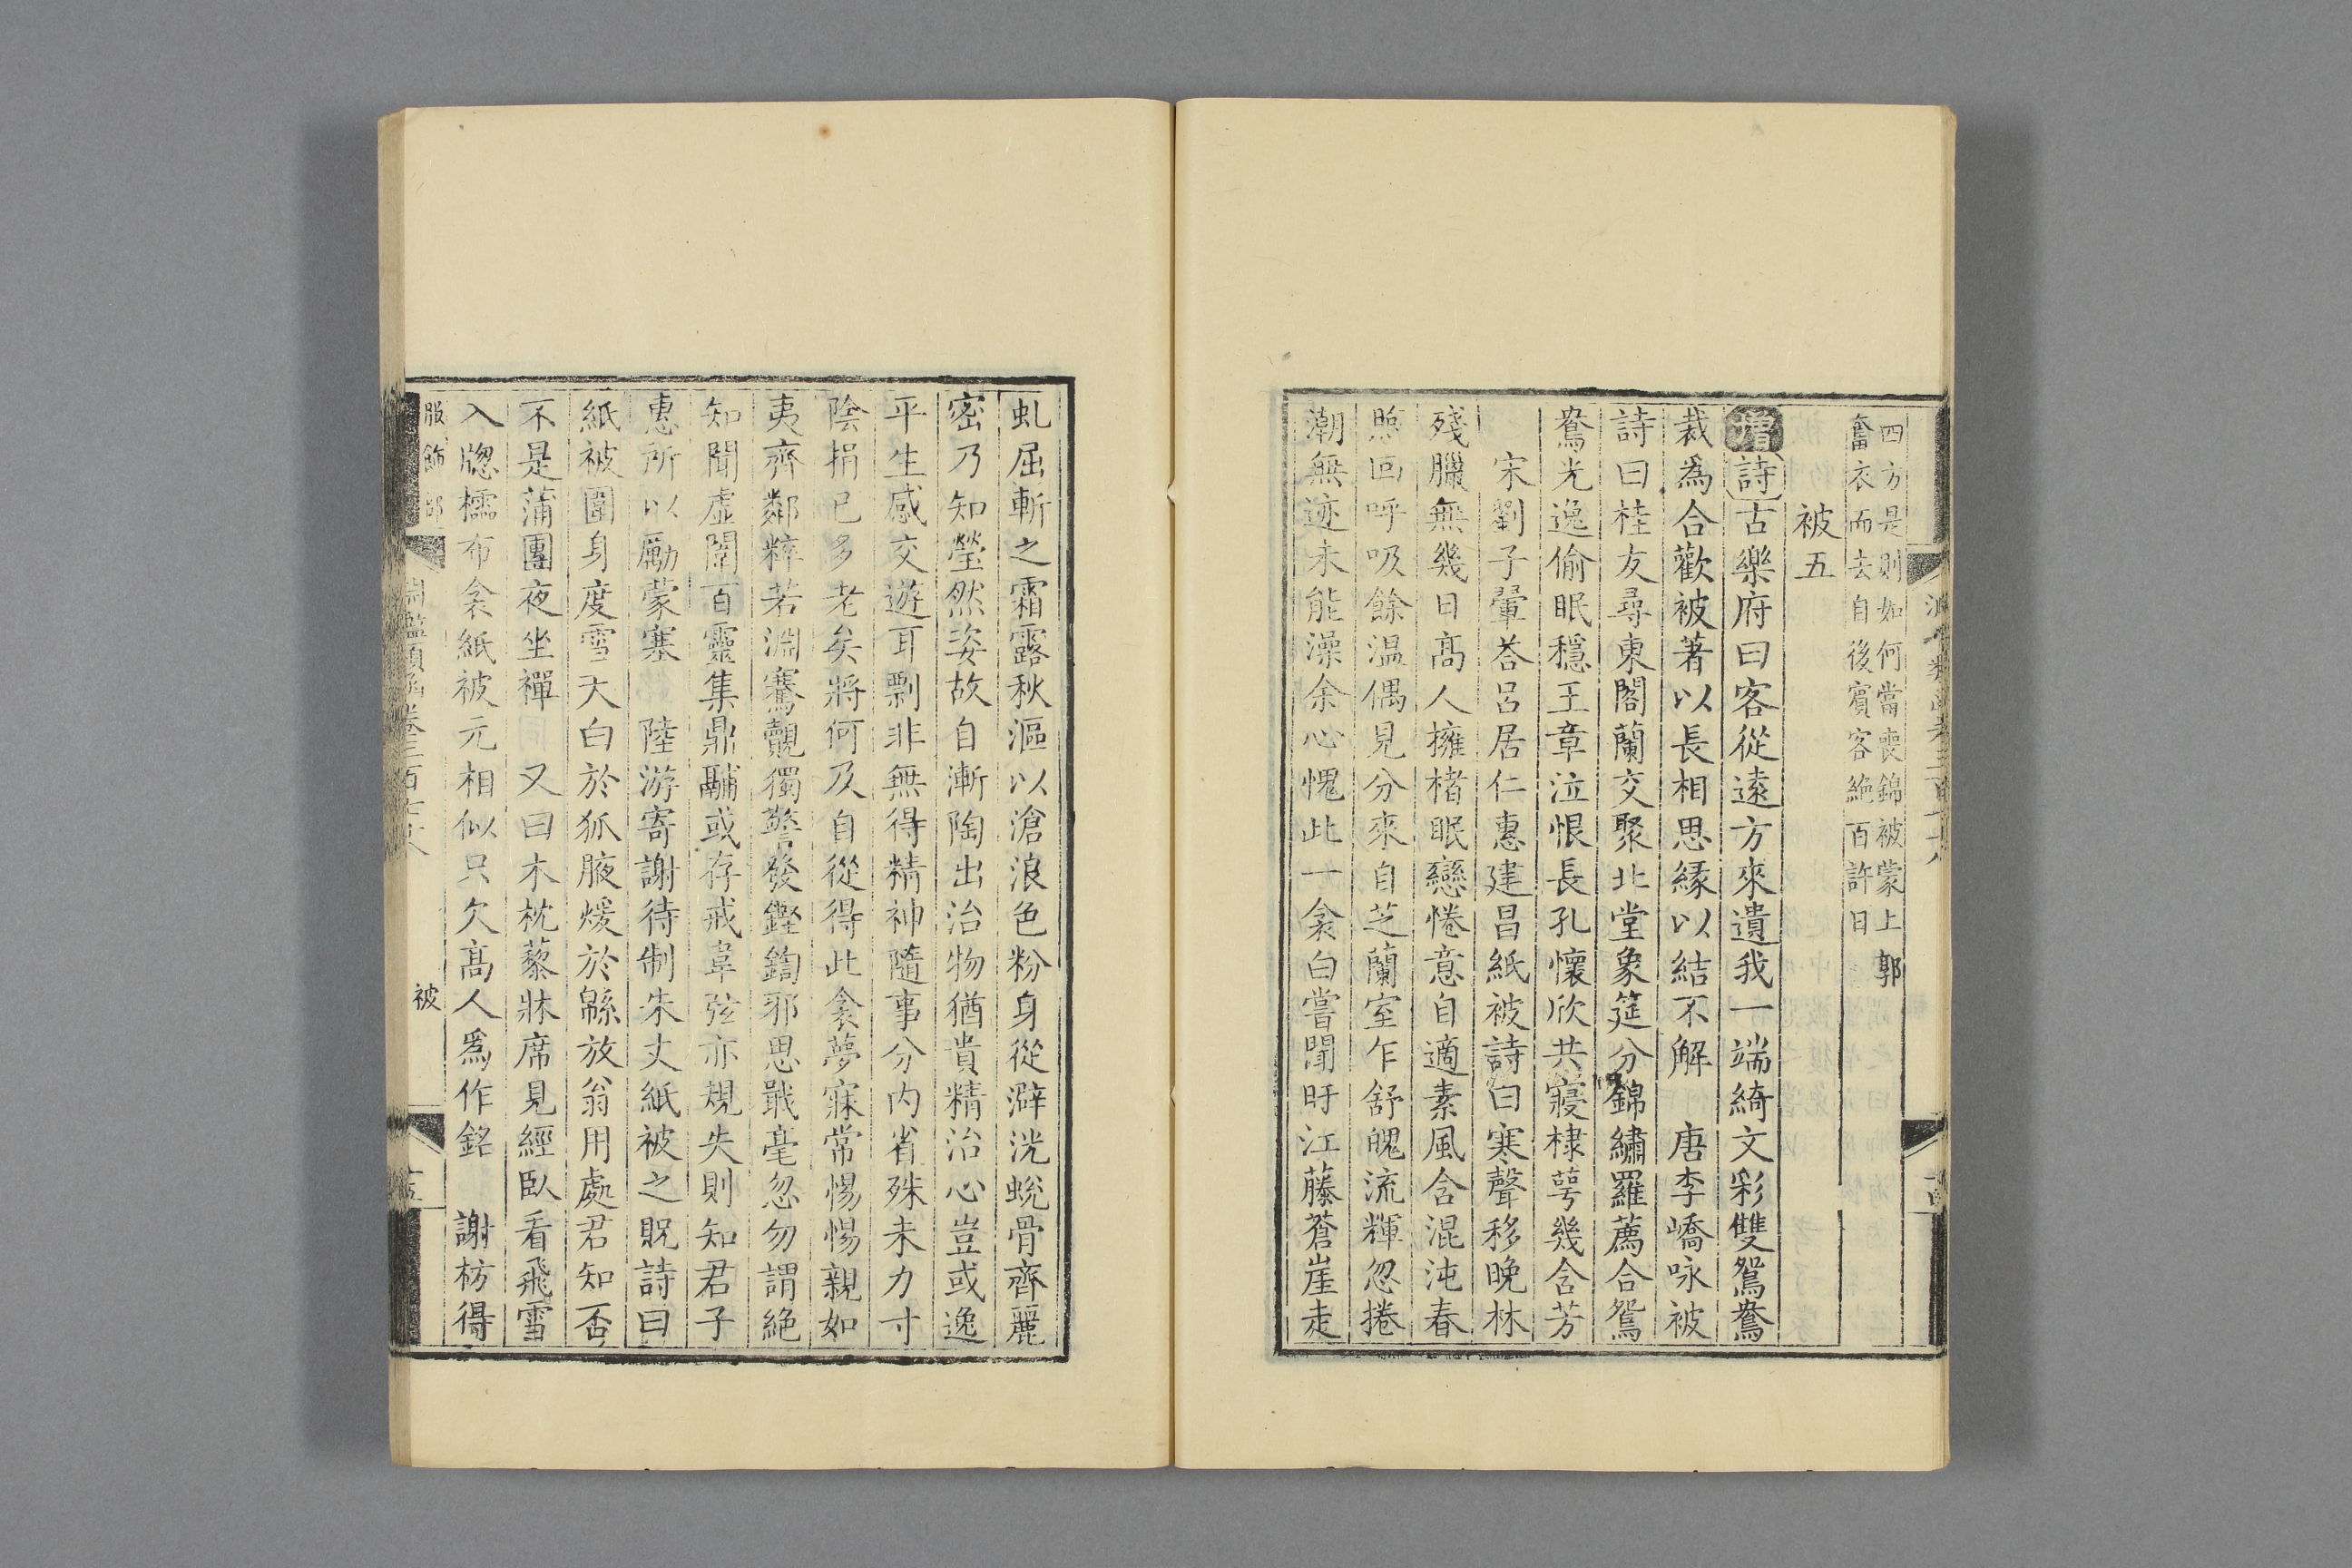 四方是則如何當喪錦被蒙上郭
奮衣而去自後賓客絶百許日
被五
增詩古樂府曰客從遠方來遺我一端綺文彩雙鴛鴦
裁爲合歡被著以長相思緣以結不解 唐李嶠咏被
詩曰桂友尋東閣蘭交聚北堂象筵分錦繡羅薦合鴛
鴦光逸偷眠穩王章泣恨長孔懷欣共寢棣萼幾含芳
宋劉子翬荅呂居仁惠建昌紙被詩曰寒聲移晚林
殘臘無幾日高人擁楮眠戀惓意自適素風含混沌春
煦回呼吸餘温偶見分來自芝蘭室乍舒魄流輝忽捲
潮無迹未能澡余心愧此一衾白嘗聞盱江藤蒼崖走
虬屈斬之霜露秋漚以滄浪色粉身從澼洸蛻骨齊麗
密乃知瑩然姿故自漸陶出治物猶貴精治心豈或逸
平生感交遊耳剽非無得精神隨事分内省殊未力寸
陰捐已多老矣將何及自從得此衾夢寐常惕惕親如
夷齊鄰粹若淵騫覿獨警發鏗鍧邪思戢毫忽勿謂絶
知聞虛闇百靈集鼎鬴或存戒韋弦亦規失則知君子
惠所以勵蒙塞 陸游寄謝待制朱丈紙被之貺詩曰
紙被圍身度雪天白於狐腋煖於緜放翁用處君知否
不是蒲團夜坐禪 又曰木枕藜牀席見經臥看飛雪
入牕櫺布衾紙被元相似只欠高人爲作銘 謝枋得
服飾部 淵鑑類函卷三百七十八 被 十五